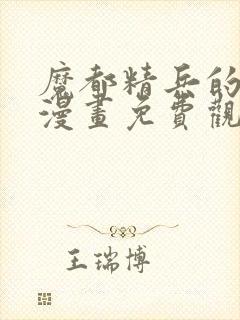 魔都精兵的
漫畫免費觀
王瑞博